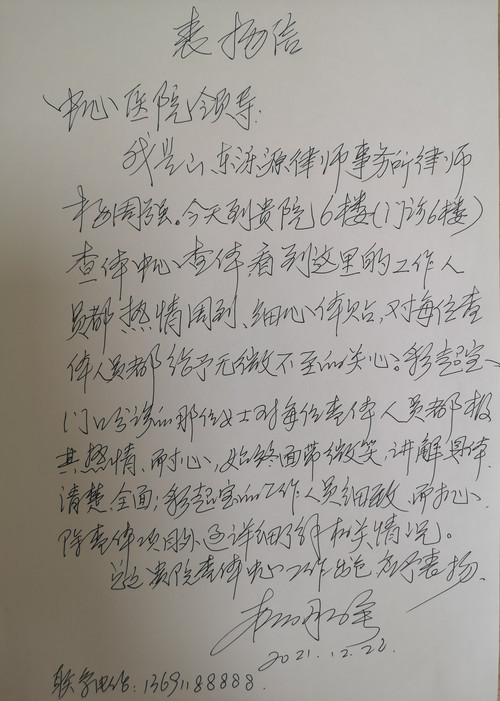 表扬信
中心医院领导:
我是山东泺源律师事务所律师
杨周强。今天到贵院6楼(门诊6楼)
查体中心查体,看到这里的工作人
员都热情周到、细心体贴,对每位查
体人员都给予无微不至的关心;彩超室
门口分诊的那位女士对每位查体人员都极
其热情、耐心,始终面带微笑,讲解具体、
清楚、全面;彩超室的工作人员细致、耐心,
除查体项目外还详细了解相关情况。
总之贵院查体中心工作出色,应予表扬。
2021.12.22
联系电话:13691188888.